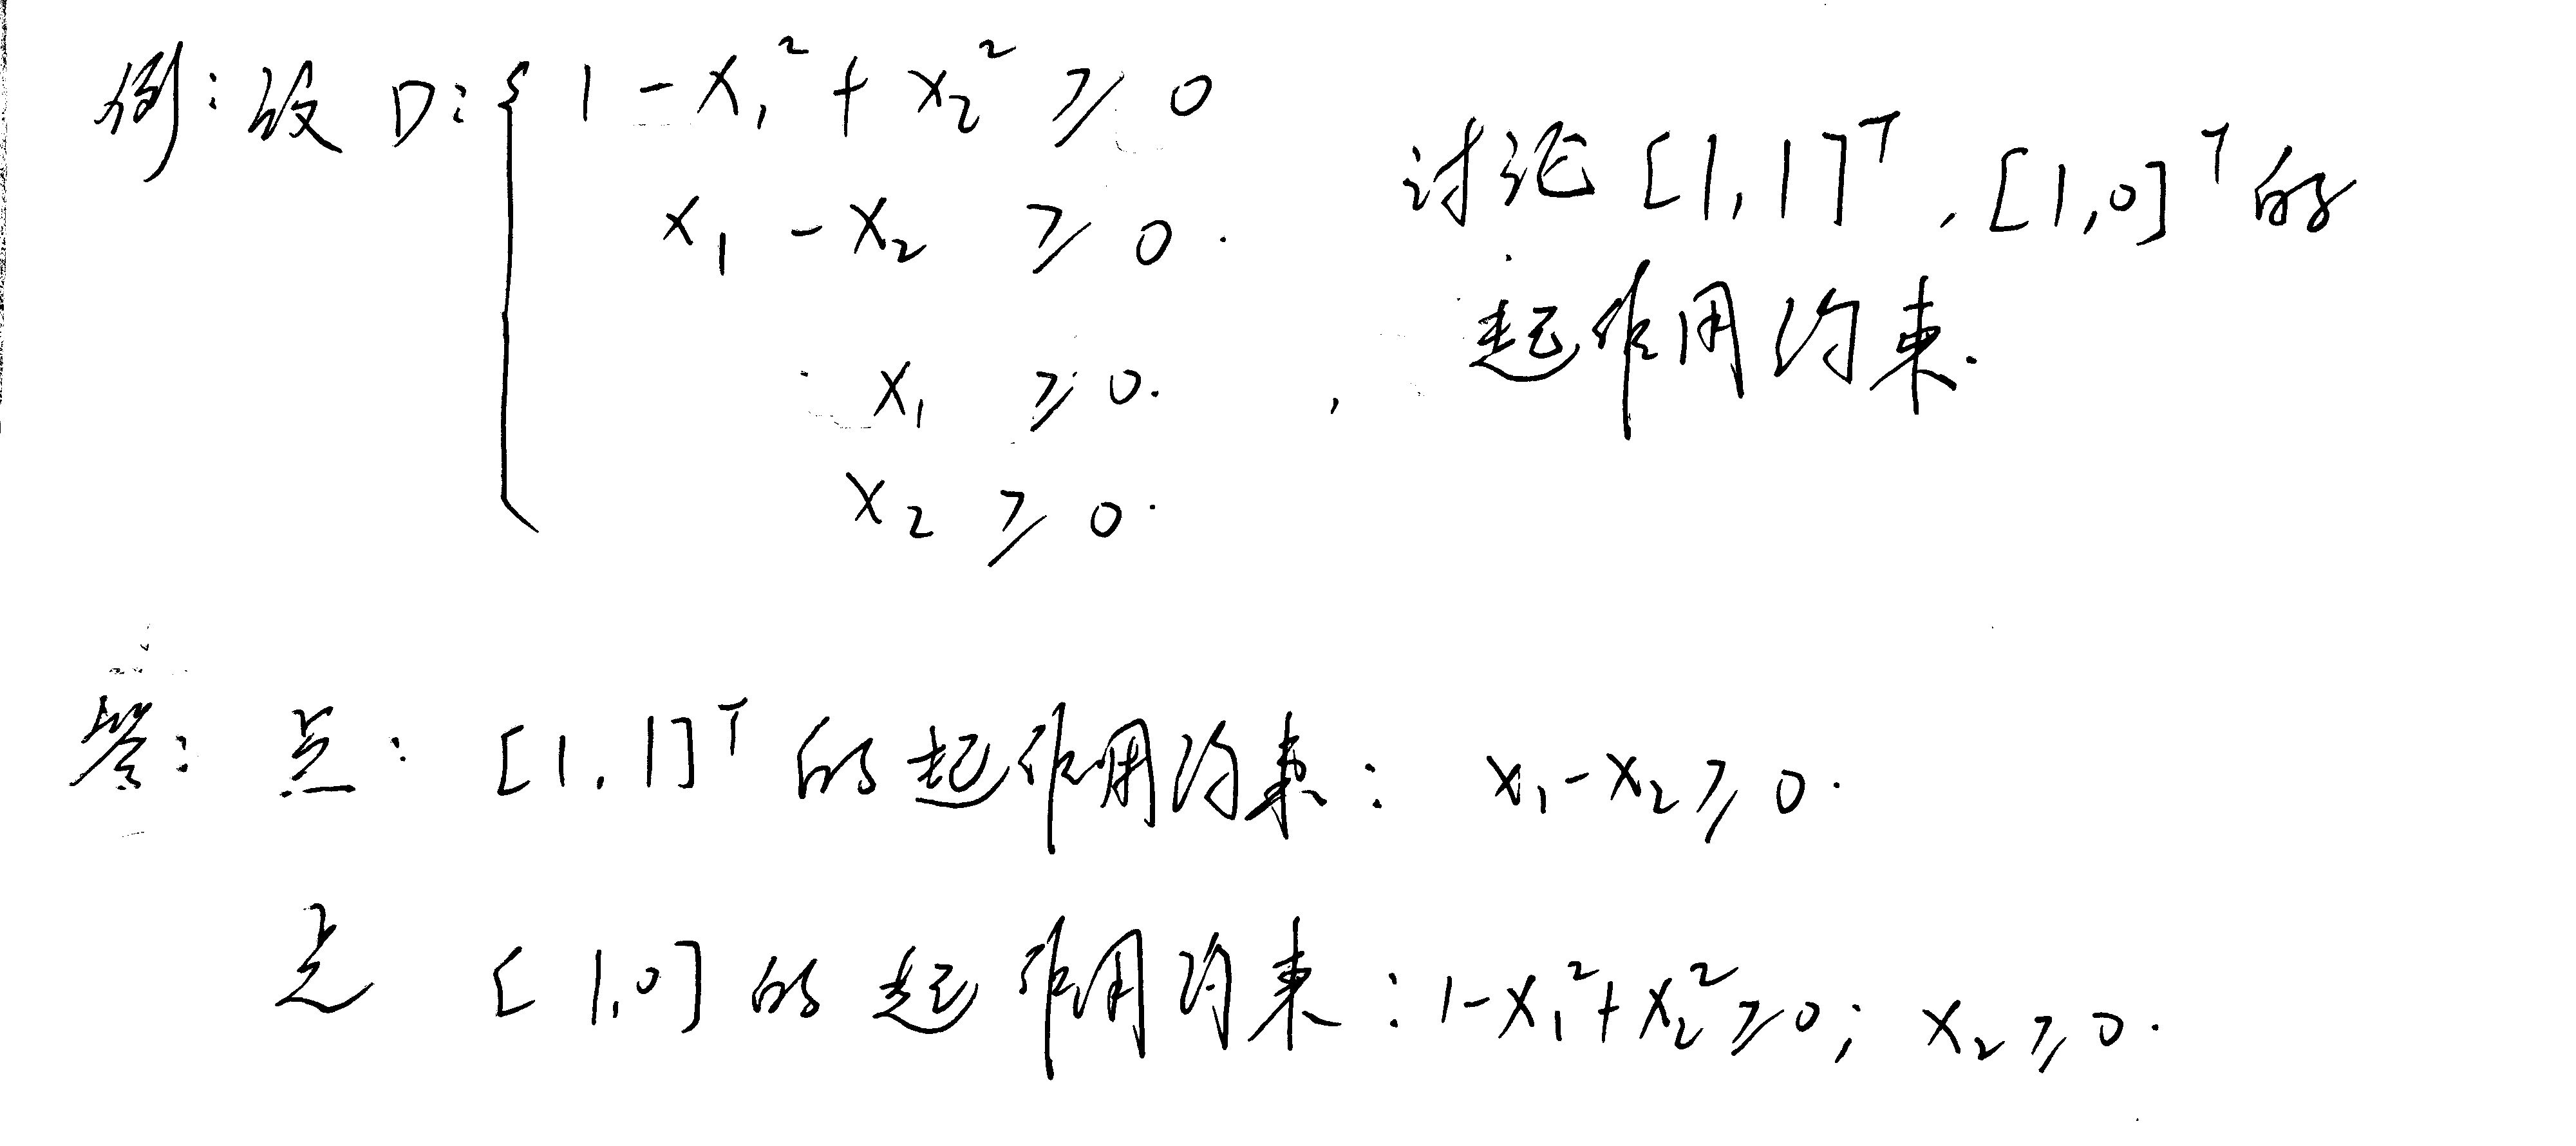 例：设 D：{ 1 - x₁² + x₂² ≥ 0
x₁ - x₂ ≥ 0.
x₁ ≥ 0.
x₂ ≥ 0.
, 讨论 [1,1]ᵀ, [1,0]ᵀ 的
起作用约束.
答：点：[1,1]ᵀ 的起作用约束：x₁-x₂≥0.
点 [1,0] 的起作用约束：1-x₁²+x₂²≥0; x₂≥0.